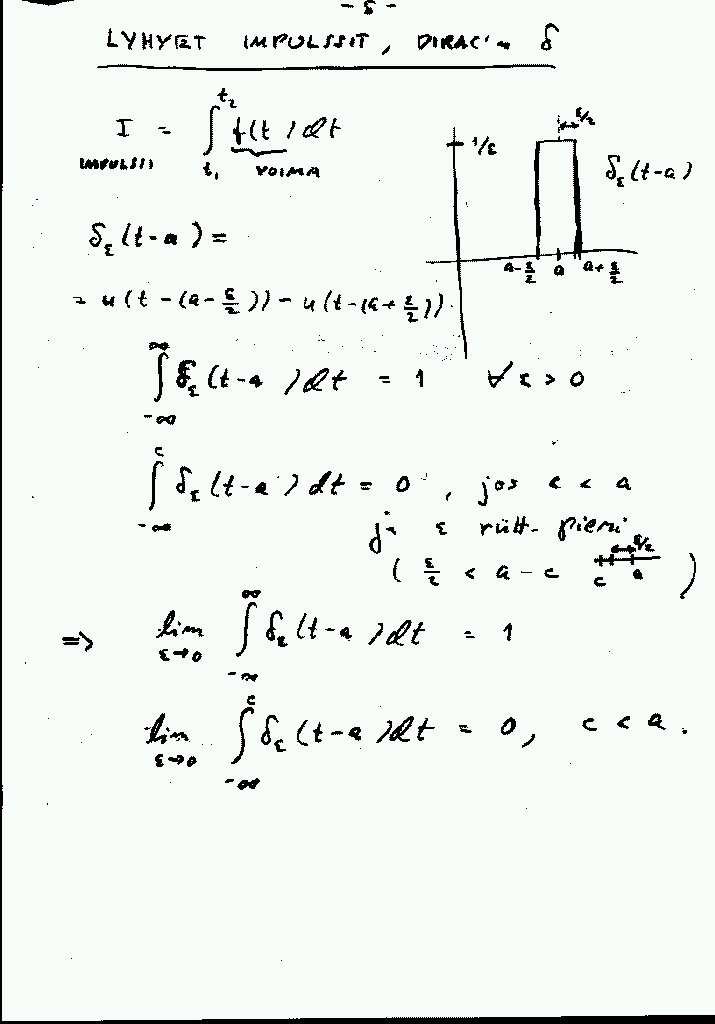 - 5 -
LYHYET IMPULSSIT, DIRAC:n δ
I = ∫_{t₁}^{t₂} f(t) dt
IMPULSSI VOIMA
1/ε ε/2 δ_ε(t-a)
a-ε/2 a a+ε/2
δ_ε(t-a) =
= u(t-(a-ε/2)) - u(t-(a+ε/2))
∫_{-∞}^{∞} δ_ε(t-a) dt = 1 ∀ ε > 0
∫_{-∞}^{c} δ_ε(t-a) dt = 0, jos c < a
ja ε riitt. pieni
(ε/2 < a-c c a ε/2)
⇒ lim_{ε→0} ∫_{-∞}^{∞} δ_ε(t-a) dt = 1
lim_{ε→0} ∫_{-∞}^{c} δ_ε(t-a) dt = 0, c < a.